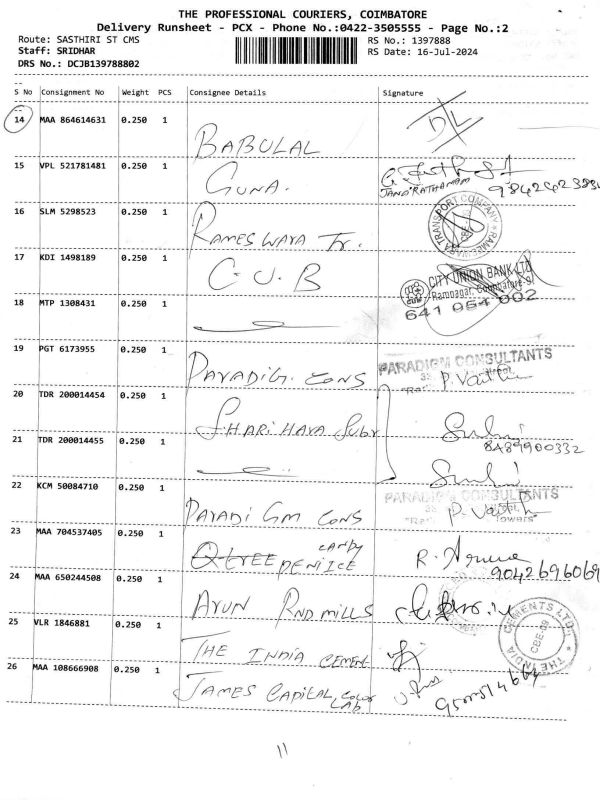 THE PROFESSIONAL COURIERS, COIMBATORE
Delivery Runsheet - PCX - Phone No.:0422-3505555 - Page No.:2
Route: SASTHIRI ST CMS
RS No.: 1397888
Staff: SRIDHAR
RS Date: 16-Jul-2024
DRS No.: DCJB139788802
S No Consignment No Weight PCS Consignee Details Signature
14 MAA 864614631 0.250 1
BABULAL
D/L
15 VPL 521781481 0.250 1
GUNA.
JANARATHANAM
16 SLM 5298523 0.250 1
RAMESWARA Tr.
RAMESWARA TRANSPORT COMPANY
17 KDI 1498189 0.250 1
C.U.B
CITY UNION BANK LTD
Ramnagar, Coimbatore-9
641 054 002
18 MTP 1308431 0.250 1
19 PGT 6173955 0.250 1
PARADIGM CONS
PARADIGM CONSULTANTS
P. Vasith
20 TDR 200014454 0.250 1
SHARI HARA SUBY
8489900332
21 TDR 200014455 0.250 1
22 KCM 50084710 0.250 1
PARADIGM CONS
PARADIGM CONSULTANTS
Towers"
23 MAA 704537405 0.250 1
Q-TREE CANDY
PENIICE
R. Aruna
9042696069
24 MAA 650244508 0.250 1
ARUN RND MILLS
25 VLR 1846881 0.250 1
THE INDIA CEMENT
THE INDIA CEMENTS LTD.
CBE-09
26 MAA 108666908 0.250 1
JAMES CAPITAL, COLOR
LAB
11